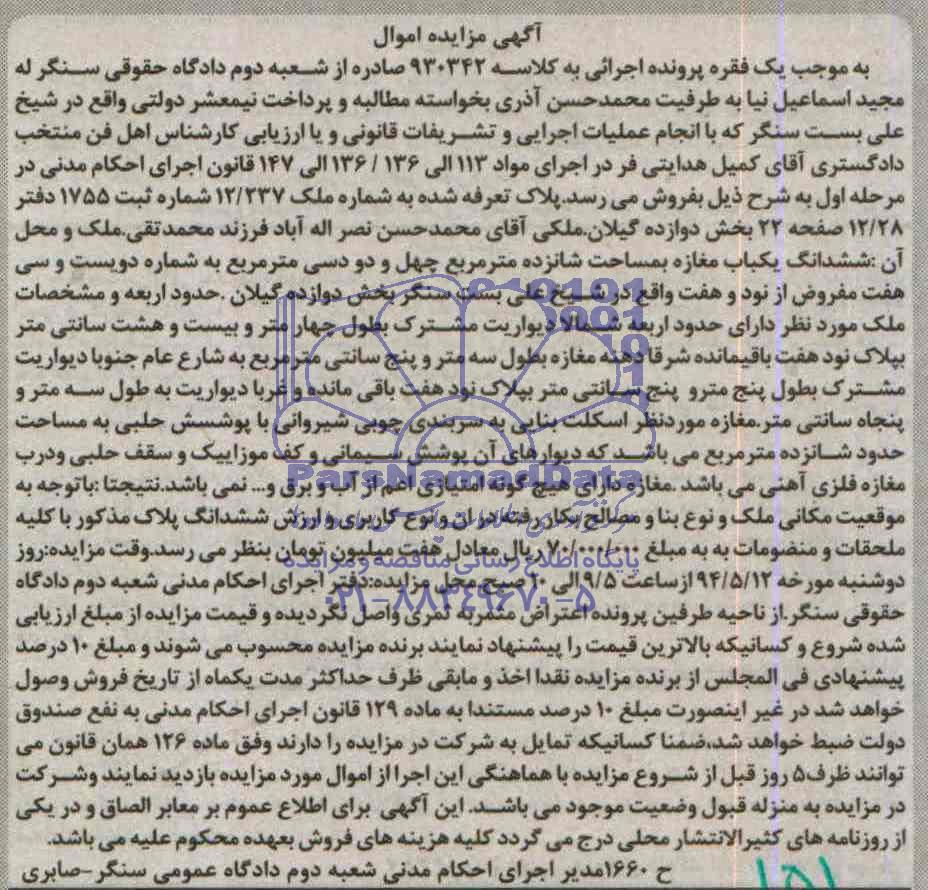 آگهی مزایده اموال
به موجب یک فقره پرونده اجرائی به کلاسه ۹۳۰۳۴۲ صادره از شعبه دوم دادگاه حقوقی سنگر له
مجید اسماعیل نیا به طرفیت محمدحسن آذری بخواسته مطالبه و پرداخت نیمعشر دولتی واقع در شیخ
علی بست سنگر که با انجام عملیات اجرایی و تشریفات قانونی و یا ارزیابی کارشناس اهل فن منتخب
دادگستری آقای کمیل هدایتی فر در اجرای مواد ۱۱۳ الی ۱۳۶ / ۱۳۶ الی ۱۴۷ قانون اجرای احکام مدنی در
مرحله اول به شرح ذیل بفروش می رسد.پلاک تعرفه شده به شماره ملک ۱۲/۲۳۷ شماره ثبت ۱۷۵۵ دفتر
۱۲/۲۸ صفحه ۲۲ بخش دوازده گیلان.ملکی آقای محمدحسن نصر اله آباد فرزند محمدتقی.ملک و محل
آن :ششدانگ یکباب مغازه بمساحت شانزده مترمربع چهل و دو دسی مترمربع به شماره دویست و سی
هفت مفروض از نود و هفت واقع در شیخ علی بست سنگر بخش دوازده گیلان .حدود اربعه و مشخصات
ملک مورد نظر دارای حدود اربعه شمالا دیواریت مشترک بطول چهار متر و بیست و هشت سانتی متر
بپلاک نود هفت باقیمانده شرقا دهنه مغازه بطول سه متر و پنج سانتی مترمربع به شارع عام جنوبا دیواریت
مشترک بطول پنج مترو پنج سانتی متر بپلاک نود هفت باقی مانده و غربا دیواریت به طول سه متر و
پنجاه سانتی متر.مغازه موردنظر اسکلت بنایی به سربندی چوبی شیروانی با پوشسش حلبی به مساحت
حدود شانزده مترمربع می باشد که دیوارهای آن پوشش سیمانی و کف موزاییک و سقف حلبی ودرب
مغازه فلزی آهنی می باشد .مغازه دارای هیچ گونه امتیازی اعم از آب و برق و... نمی باشد.نتیجتا :باتوجه به
موقعیت مکانی ملک و نوع بنا و مصالح بکار رفته در ان و نوع کاربری و ارزش ششدانگ پلاک مذکور با کلیه
ملحقات و منضومات به به مبلغ ۷۰/۰۰۰/۰۰۰ ریال معادل هفت میلیون تومان بنظر می رسد.وقت مزایده:روز
دوشنبه مورخه ۹۴/۵/۱۲ ازساعت ۹/۵ الی ۱۰ صبح محل مزایده:دفتر اجرای احکام مدنی شعبه دوم دادگاه
حقوقی سنگر.از ناحیه طرفین پرونده اعتراض مثمربه ثمری واصل نگردیده و قیمت مزایده از مبلغ ارزیابی
شده شروع و کسانیکه بالاترین قیمت را پیشنهاد نمایند برنده مزایده محسوب می شوند و مبلغ ۱۰ درصد
پیشنهادی فی المجلس از برنده مزایده نقدا اخذ و مابقی ظرف حداکثر مدت یکماه از تاریخ فروش وصول
خواهد شد در غیر اینصورت مبلغ ۱۰ درصد مستندا به ماده ۱۲۹ قانون اجرای احکام مدنی به نفع صندوق
دولت ضبط خواهد شد،ضمنا کسانیکه تمایل به شرکت در مزایده را دارند وفق ماده ۱۲۶ همان قانون می
توانند ظرف۵ روز قبل از شروع مزایده با هماهنگی این اجرا از اموال مورد مزایده بازدید نمایند وشرکت
در مزایده به منزله قبول وضعیت موجود می باشد. این آگهی برای اطلاع عموم بر معابر الصاق و در یکی
از روزنامه های کثیرالانتشار محلی درج می گردد کلیه هزینه های فروش بعهده محکوم علیه می باشد.
ح ۱۶۶۰مدیر اجرای احکام مدنی شعبه دوم دادگاه عمومی سنگر-صابری
ParsNamadData
پایگاه اطلاع رسانی مناقصه و مزایده
۰۲۱-۸۸۳۴۹۶۷۰-۵